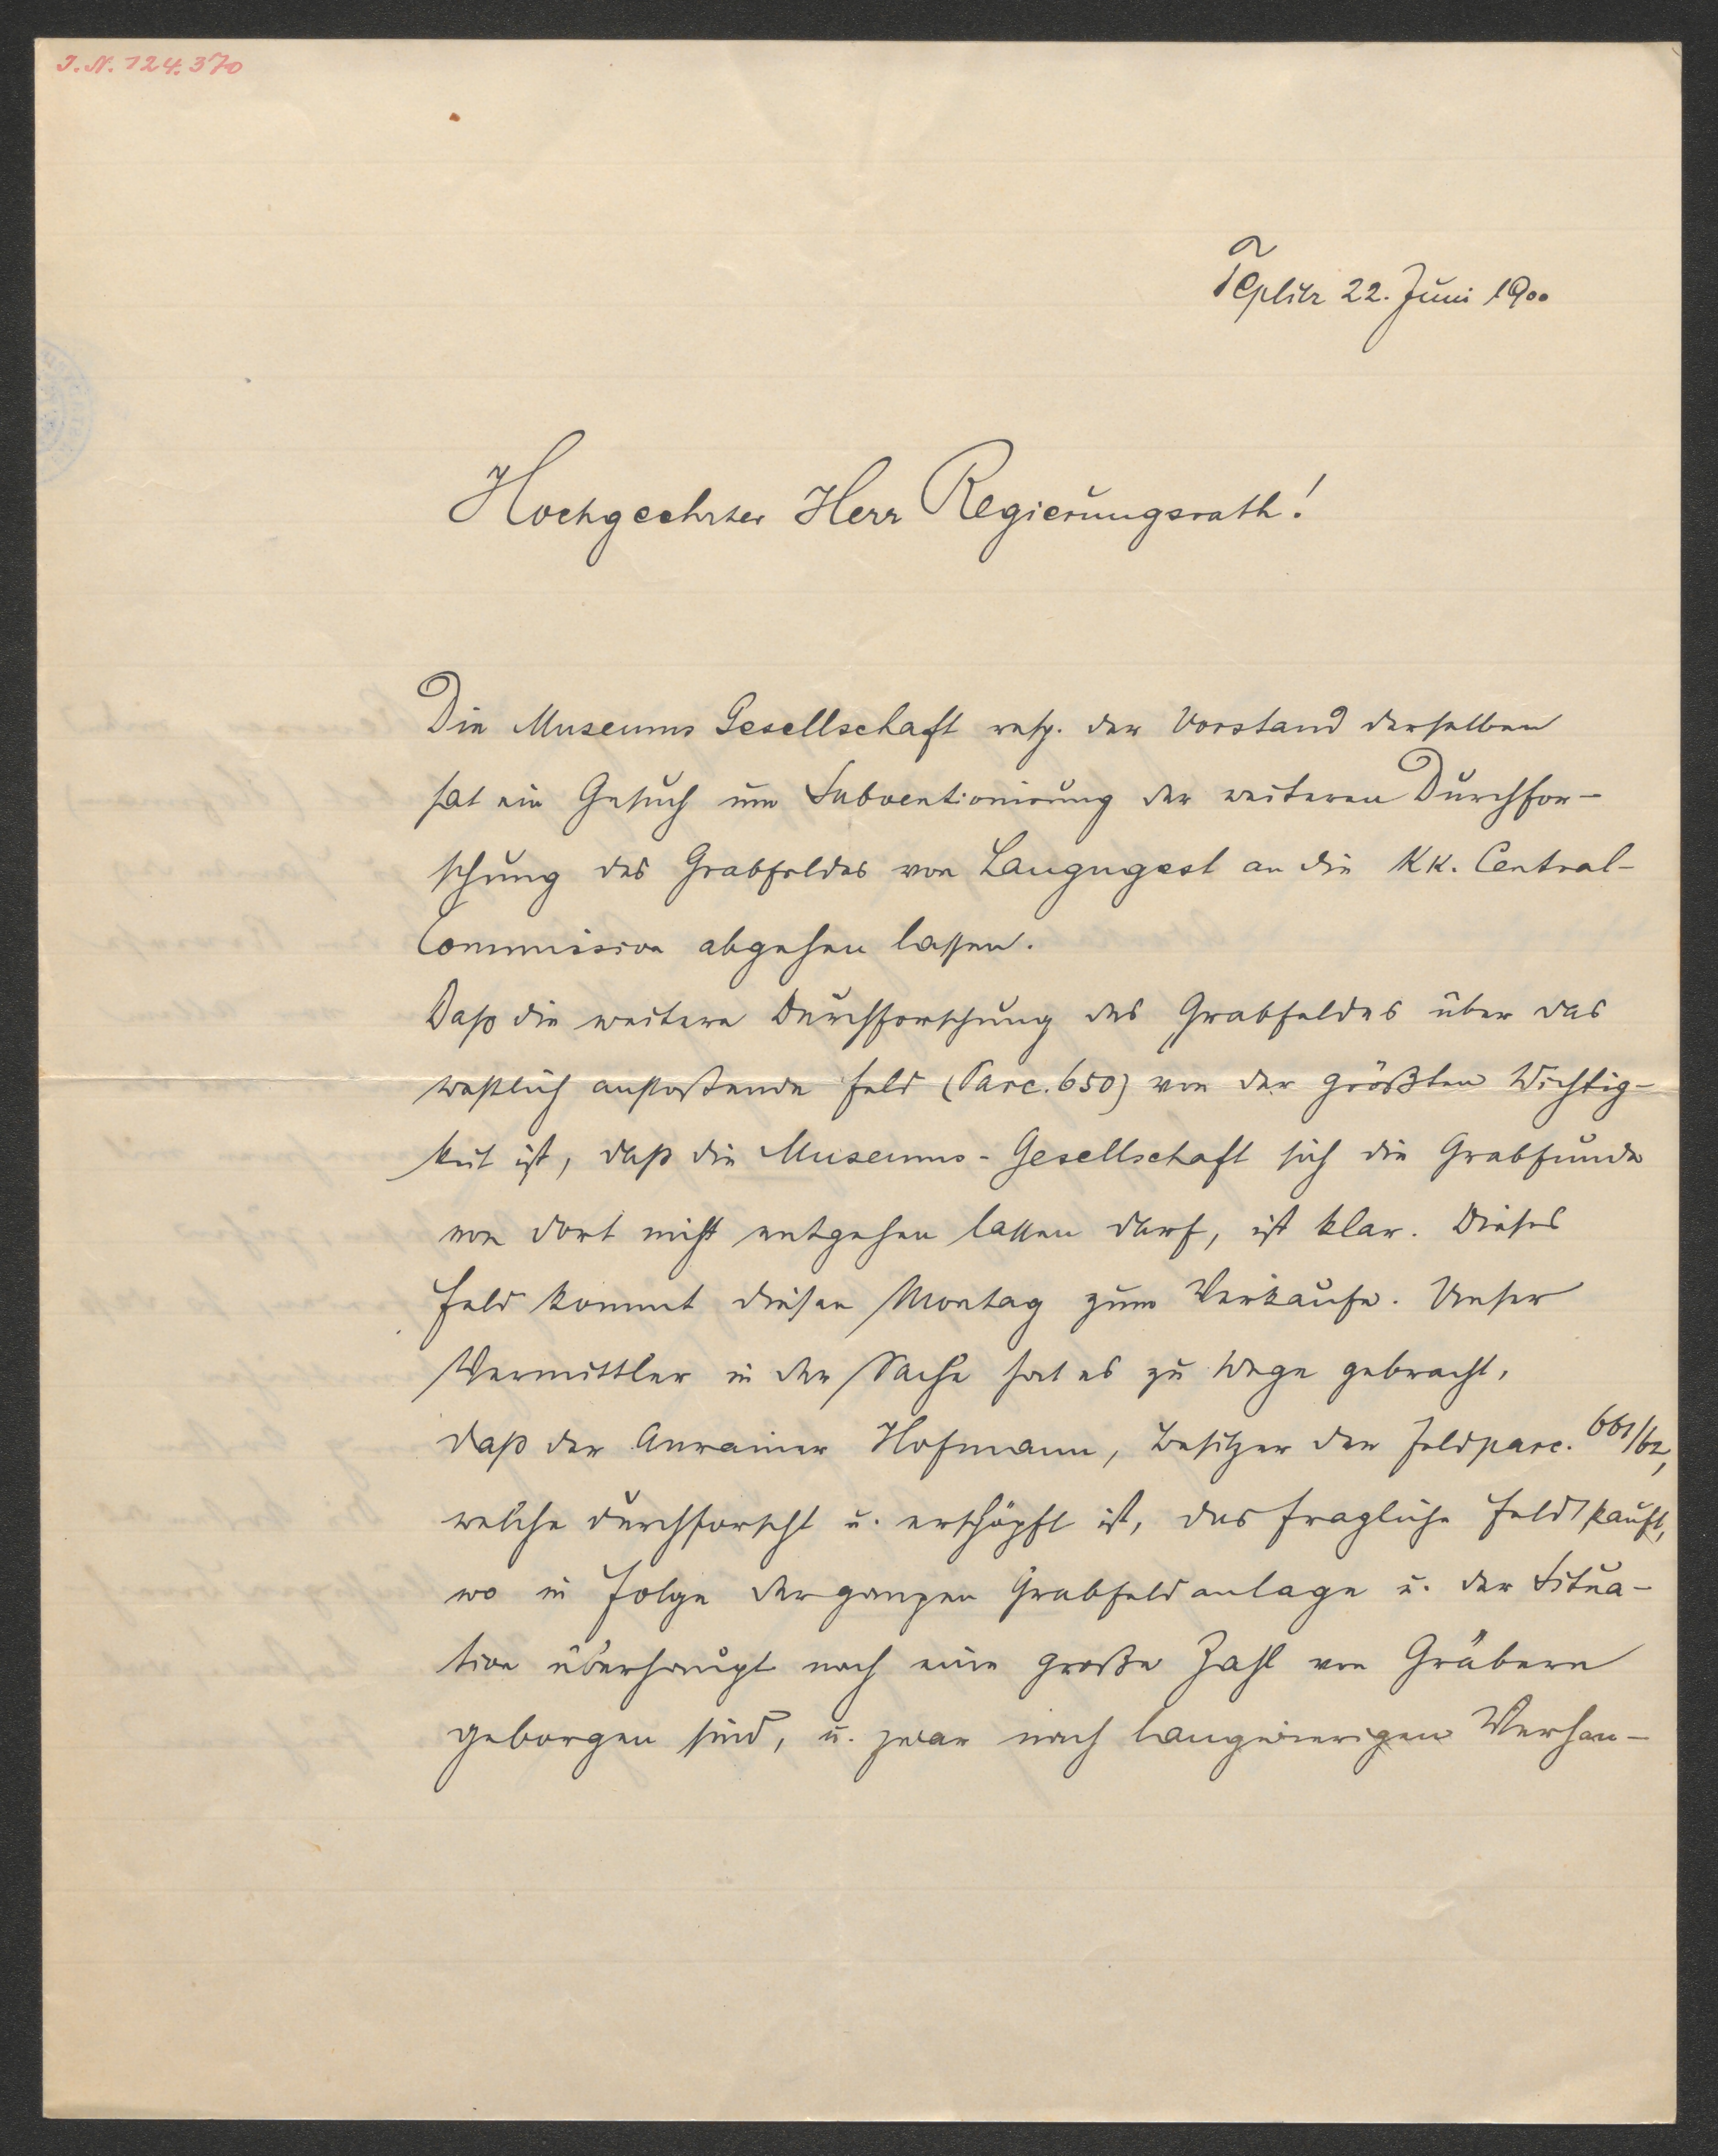 J.N. 124.370
Teplitz 22. Juni 1900
Hochgeehrter Herr Regierungsrath!
Die Museums Gesellschaft resp. der Vorstand derselben
hat ein Gesuch um Subventionirung der weiteren Durchfor-
schung des Grabfeldes von Langugest an die KK. Central-
Commission abgehen lassen.
Daß die weitere Durchforschung des Grabfeldes über das
westlich anstoßende Feld (Parc. 650) von der größten Wichtig-
keit ist, daß die Museums-Gesellschaft sich die Grabfunde
von dort nicht entgehen lassen darf, ist klar. Dieses
Feld kommt diesen Montag zum Verkaufe. Unser
Vermittler in der Sache hat es zu Wege gebracht,
daß der Anrainer Hofmann, Besitzer der Feldparc. 661/62,
welche durchforscht u. erschöpft ist, das fragliche Feld kauft,
wo in Folge der ganzen Grabfeldanlage u. der Situa-
tion überhaupt noch eine große Zahl von Gräbern
geborgen sind, u. zwar nach langwierigen Verhan-